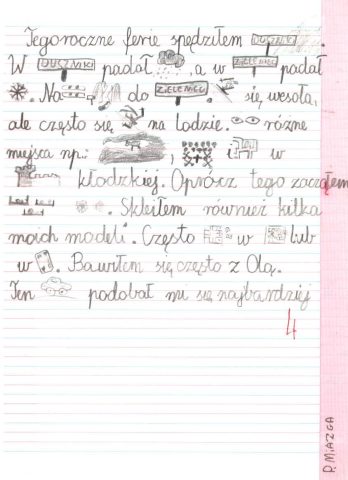 Tegoroczne ferie spędziłem DUSZNIKI.
W DUSZNIKI padał , a w ZIELENIEC padał
. Na do ZIELENIEC. się wesoła,
ale często się na lodzie. różne
miejsca np.: , i w
kłodzkiej. Oprócz tego zacząłem
. Skleiłem również kilka
moich modeli. Często w lub
w . Bawiłem się często z Olą.
Ten podobał mi się najbardziej
4
P. MIAZGA